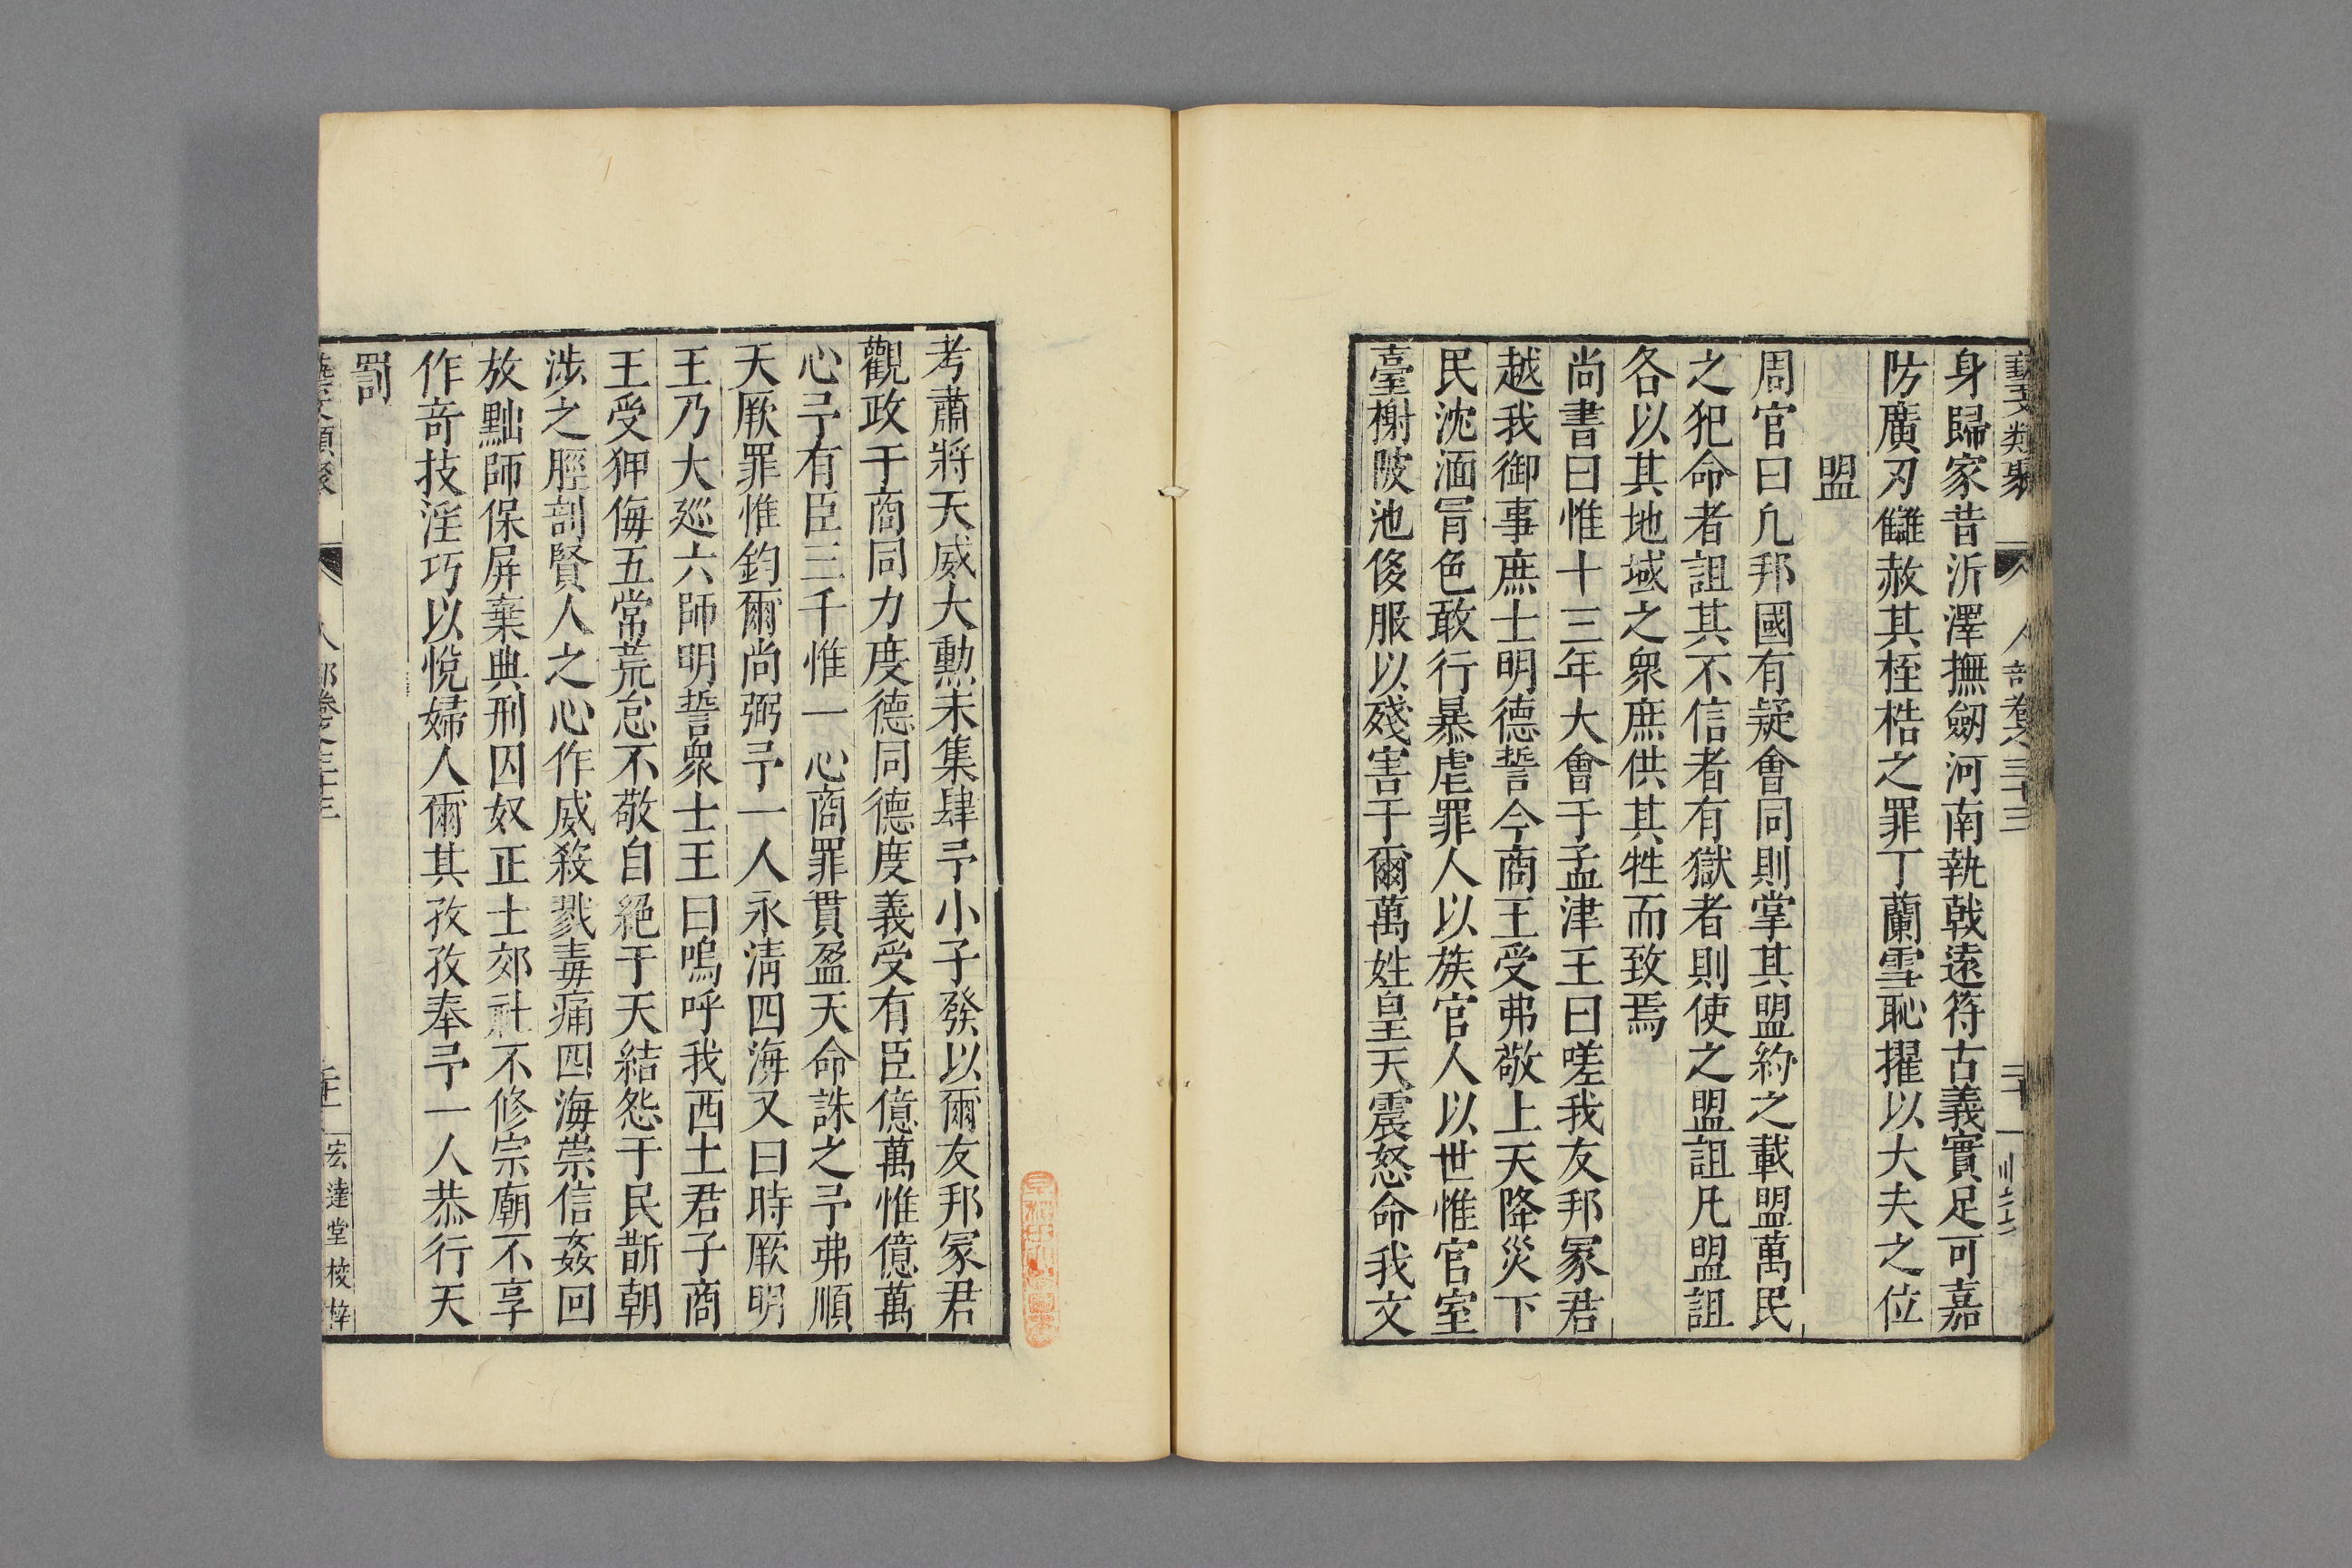 藝文類聚 人部卷之三十三 三十一
身歸家昔沂澤撫劒河南執戟遠符古義實足可嘉
防廣刃讎赦其桎梏之罪丁蘭雪恥擢以大夫之位
盟
周官曰凡邦國有疑會同則掌其盟約之載盟萬民
之犯命者詛其不信者有獄者則使之盟詛凡盟詛
各以其地域之衆庶供其牲而致焉
尚書曰惟十三年大會于孟津王曰嗟我友邦冢君
越我御事庶士明德誓今商王受弗敬上天降災下
民沈湎冐色敢行暴虐罪人以族官人以世惟官室
臺榭陂池侈服以殘害于爾萬姓皇天震怒命我文
考肅將天威大勳未集肆予小子發以爾友邦冢君
觀政于商同力度德同德度義受有臣億萬惟億萬
心予有臣三千惟一心商罪貫盈天命誅之予弗順
天厥罪惟鈞爾尚弼予一人永淸四海又曰時厥明
王乃大廵六師明誓衆士王曰嗚呼我西土君子商
王受狎侮五常荒怠不敬自絕于天結怨于民斮朝
涉之脛剖賢人之心作威殺戮毒痡四海崇信姦回
放黜師保屏棄典刑囚奴正士郊社不修宗廟不享
作奇技淫巧以悅婦人爾其孜孜奉予一人恭行天
罰
藝文類聚 人部卷之三十三 宏達堂校梓